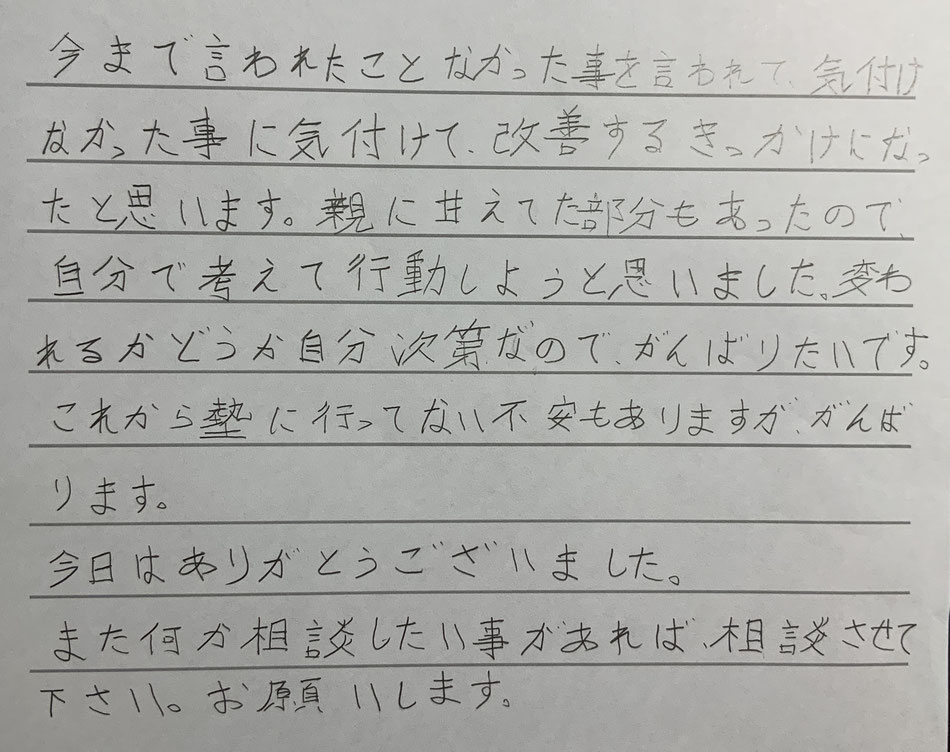 今まで言われたことなかった事を言われて、気付け
なかった事に気付けて、改善するきっかけになっ
たと思います。親に甘えてた部分もあったので、
自分で考えて行動しようと思いました。変わ
れるかどうか自分次第なので、がんばりたいです。
これから塾に行ってない不安もありますが、がんば
ります。
今日はありがとうございました。
また何か相談したい事があれば、相談させて
下さい。お願いします。